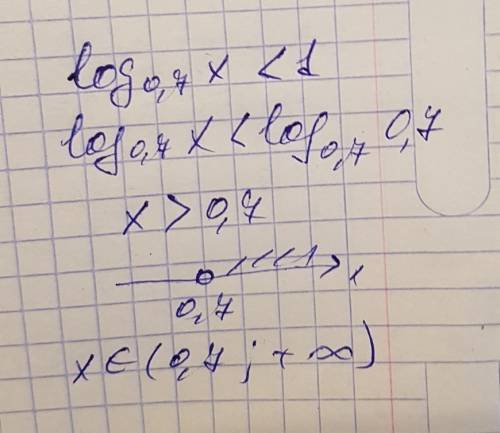 log₀,₇ x < 1
log₀,₇ x < log₀,₇ 0,7
x > 0,7
0,7
x ∈ (0,7 ; + ∞)